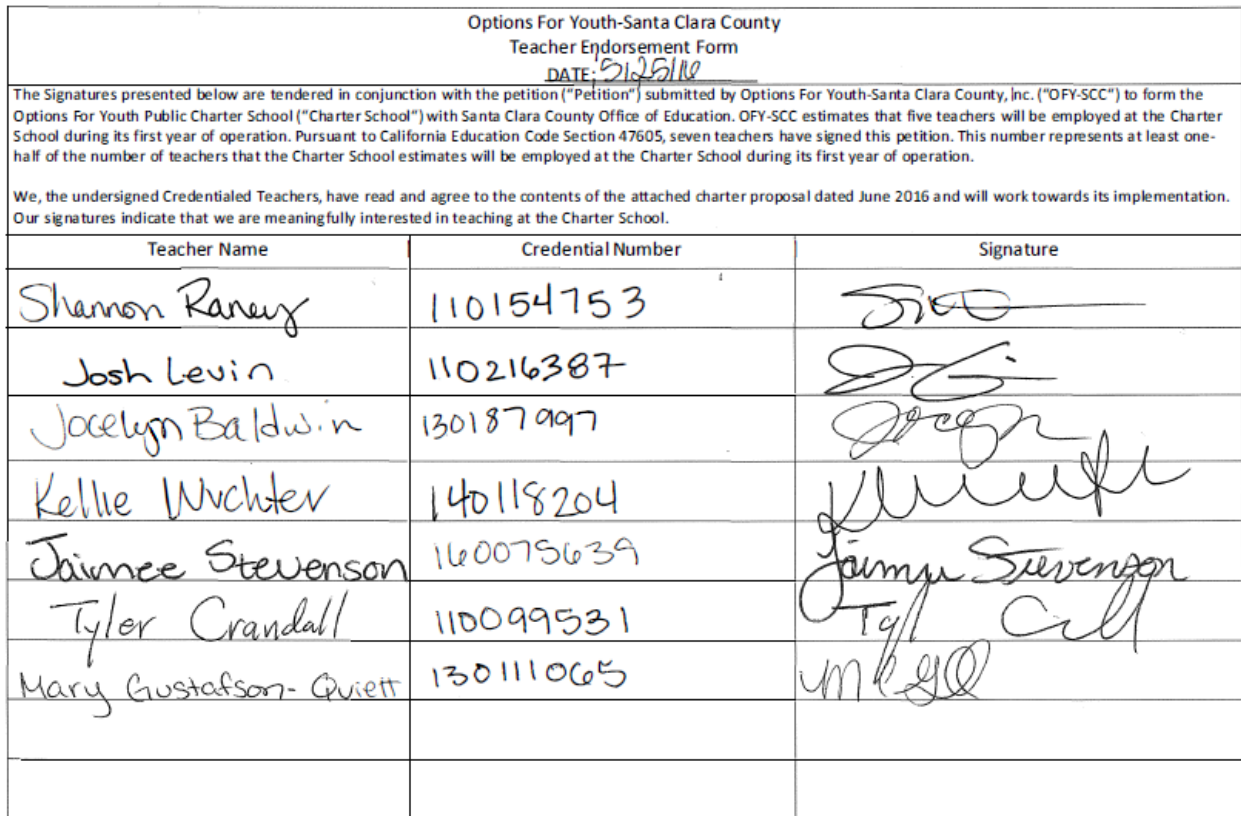 Options For Youth-Santa Clara County
Teacher Endorsement Form
DATE: 5/25/16
The Signatures presented below are tendered in conjunction with the petition ("Petition") submitted by Options For Youth-Santa Clara County, Inc. ("OFY-SCC") to form the
Options For Youth Public Charter School ("Charter School") with Santa Clara County Office of Education. OFY-SCC estimates that five teachers will be employed at the Charter
School during its first year of operation. Pursuant to California Education Code Section 47605, seven teachers have signed this petition. This number represents at least one-
half of the number of teachers that the Charter School estimates will be employed at the Charter School during its first year of operation.
We, the undersigned Credentialed Teachers, have read and agree to the contents of the attached charter proposal dated June 2016 and will work towards its implementation.
Our signatures indicate that we are meaningfully interested in teaching at the Charter School.
Teacher Name Credential Number Signature
Shannon Raney 110154753
Josh Levin 110216387
Jocelyn Baldwin 130187997
Kellie Wuchter 140118204
Jaimee Stevenson 160075639 Jaimee Stevenson
Tyler Crandall 110099531
Mary Gustafson-Quiett 130111065